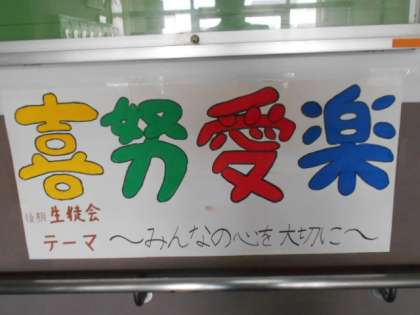 喜努愛楽
後期生徒会
テーマ 〜みんなの心を大切に〜